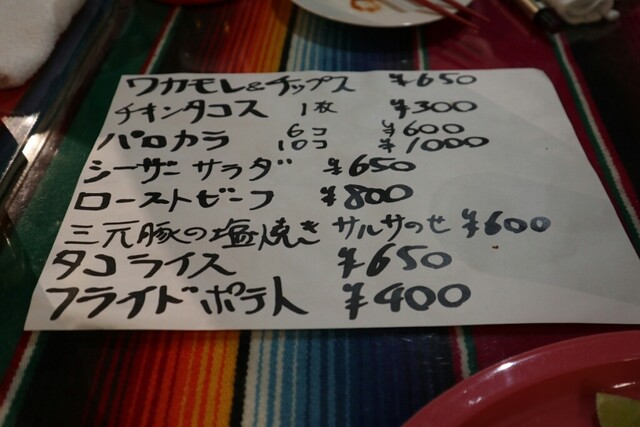 ワカモレ&チップス ¥650
チキンタコス 1枚 ¥300
パロカラ 6コ ¥600
10コ ¥1000
シーザーサラダ ¥650
ローストビーフ ¥800
三元豚の塩焼き サルサのせ ¥600
タコライス ¥650
フライドポテト ¥400